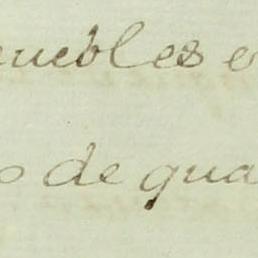 muebles e
o de gua